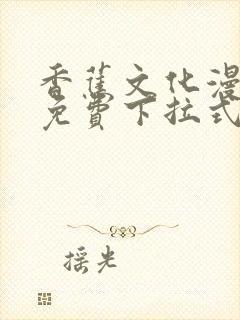 香蕉文化漫
免費下拉式
摇光